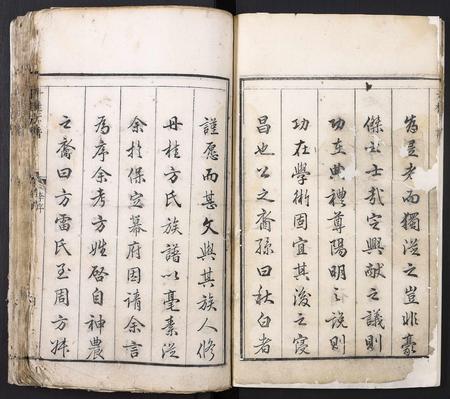 而獨從之豈非豪
傑之士哉定興献之議則
功在典禮尊陽明之說則
功在學術固宜其後之寖
昌也公之裔孫曰秋白者
謹愿而甚文與其族人修
丹桂方氏族譜以毫素從
余於保定幕府因請余言
為序余考方姓啓自神農
之裔曰方雷氏至周方叔